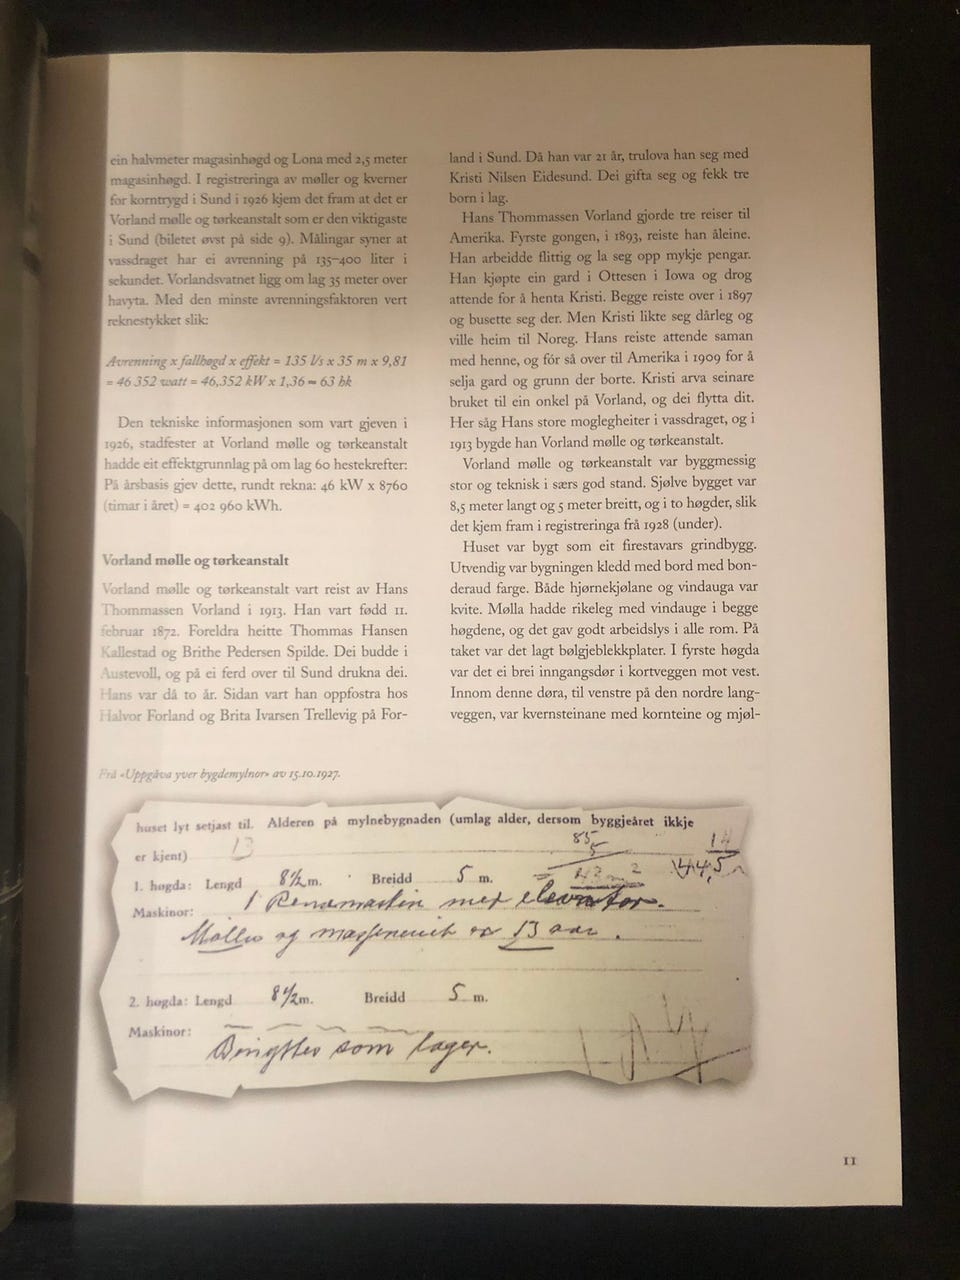 ein halvmeter magasinhøgd og Lona med 2,5 meter
magasinhøgd. I registreringa av møller og kverner
for korntrygd i Sund i 1926 kjem det fram at det er
Vorland mølle og tørkeanstalt som er den viktigaste
i Sund (biletet øvst på side 9). Målingar syner at
vassdraget har ei avrenning på 135–400 liter i
sekundet. Vorlandsvatnet ligg om lag 35 meter over
havyta. Med den minste avrenningsfaktoren vert
reknestykket slik:
Avrenning x fallhøgd x effekt = 135 l/s x 35 m x 9,81
= 46 352 watt = 46,352 kW x 1,36 = 63 hk
Den tekniske informasjonen som vart gjeven i
1926, stadfester at Vorland mølle og tørkeanstalt
hadde eit effektgrunnlag på om lag 60 hestekrefter:
På årsbasis gjev dette, rundt rekna: 46 kW x 8760
(timar i året) = 402 960 kWh.
Vorland mølle og tørkeanstalt
Vorland mølle og tørkeanstalt vart reist av Hans
Thommassen Vorland i 1913. Han vart fødd 11.
februar 1872. Foreldra heitte Thommas Hansen
Kallestad og Brithe Pedersen Spilde. Dei budde i
Austevoll, og på ei ferd over til Sund drukna dei.
Hans var då to år. Sidan vart han oppfostra hos
Halvor Forland og Brita Ivarsen Trellevig på For-
land i Sund. Då han var 21 år, trulova han seg med
Kristi Nilsen Eidesund. Dei gifta seg og fekk tre
born i lag.
Hans Thommassen Vorland gjorde tre reiser til
Amerika. Fyrste gongen, i 1893, reiste han åleine.
Han arbeidde flittig og la seg opp mykje pengar.
Han kjøpte ein gard i Ottesen i Iowa og drog
attende for å henta Kristi. Begge reiste over i 1897
og busette seg der. Men Kristi likte seg dårleg og
ville heim til Noreg. Hans reiste attende saman
med henne, og fór så over til Amerika i 1909 for å
selja gard og grunn der borte. Kristi arva seinare
bruket til ein onkel på Vorland, og dei flytta dit.
Her såg Hans store moglegheiter i vassdraget, og i
1913 bygde han Vorland mølle og tørkeanstalt.
Vorland mølle og tørkeanstalt var byggmessig
stor og teknisk i særs god stand. Sjølve bygget var
8,5 meter langt og 5 meter breitt, og i to høgder, slik
det kjem fram i registreringa frå 1928 (under).
Huset var bygt som eit firestavars grindbygg.
Utvendig var bygningen kledd med bord med bon-
deraud farge. Både hjørnekjølane og vindauga var
kvite. Mølla hadde rikeleg med vindauge i begge
høgdene, og det gav godt arbeidslys i alle rom. På
taket var det lagt bølgjeblekkplater. I fyrste høgda
var det ei brei inngangsdør i kortveggen mot vest.
Innom denne døra, til venstre på den nordre lang-
veggen, var kvernsteinane med kornteine og mjøl-
Frå «Uppgåva yver bygdemylnor» av 15.10.1927.
huset lyt setjast til. Alderen på mylnebygnaden (umlag alder, dersom byggjeåret ikkje
er kjent) 13
1. høgda: Lengd 8½ m. Breidd 5 m.
Maskinor: 1 med elevator.
Mølle og 13 aar.
2. høgda: Lengd 8½ m. Breidd 5 m.
Maskinor:
som lager.
11